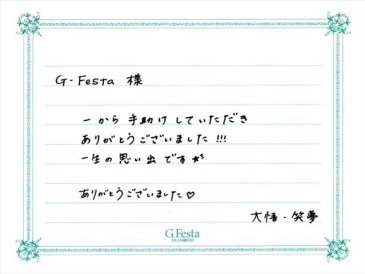 G・Festa 様
一から手助けしていただき
ありがとうございました!!!
一生の思い出です☆
ありがとうございました♡
大悟・笑夢
G.Festa
DIAMONDS